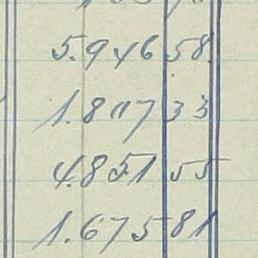 5.946 58
1.817 33
4.851 55
1.675 81